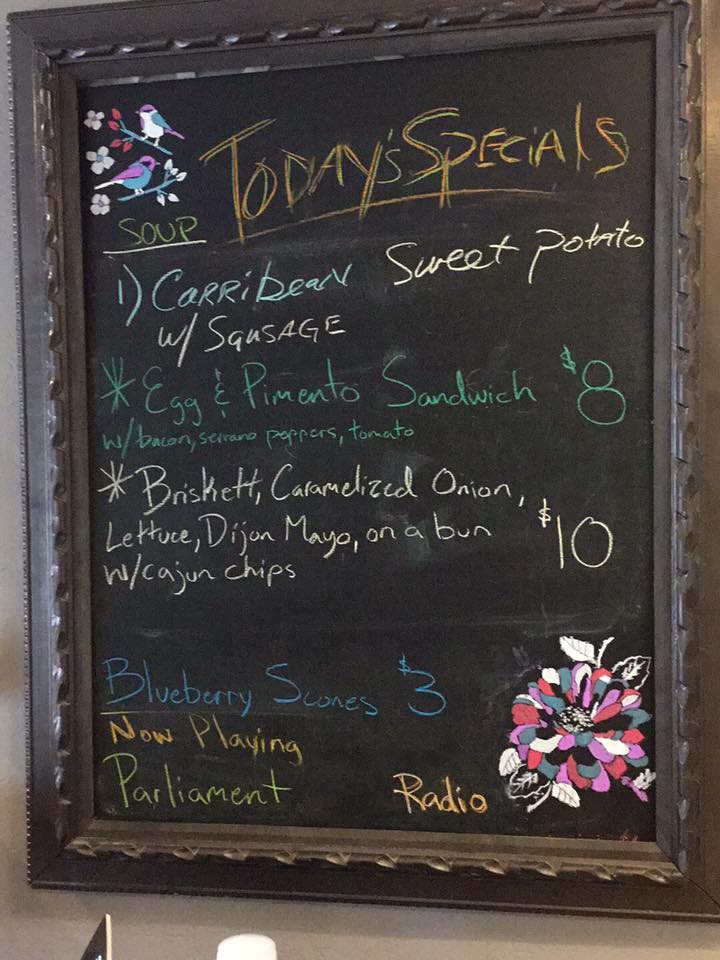 Today's Specials
SOUP
1) Carribean Sweet Potato
w/ Sausage
* Egg & Pimento Sandwich $8
w/bacon, serrano peppers, tomato
* Briskett, Caramelized Onion,
Lettuce, Dijon Mayo, on a bun $10
w/cajun chips
Blueberry Scones $3
Now Playing
Parliament Radio